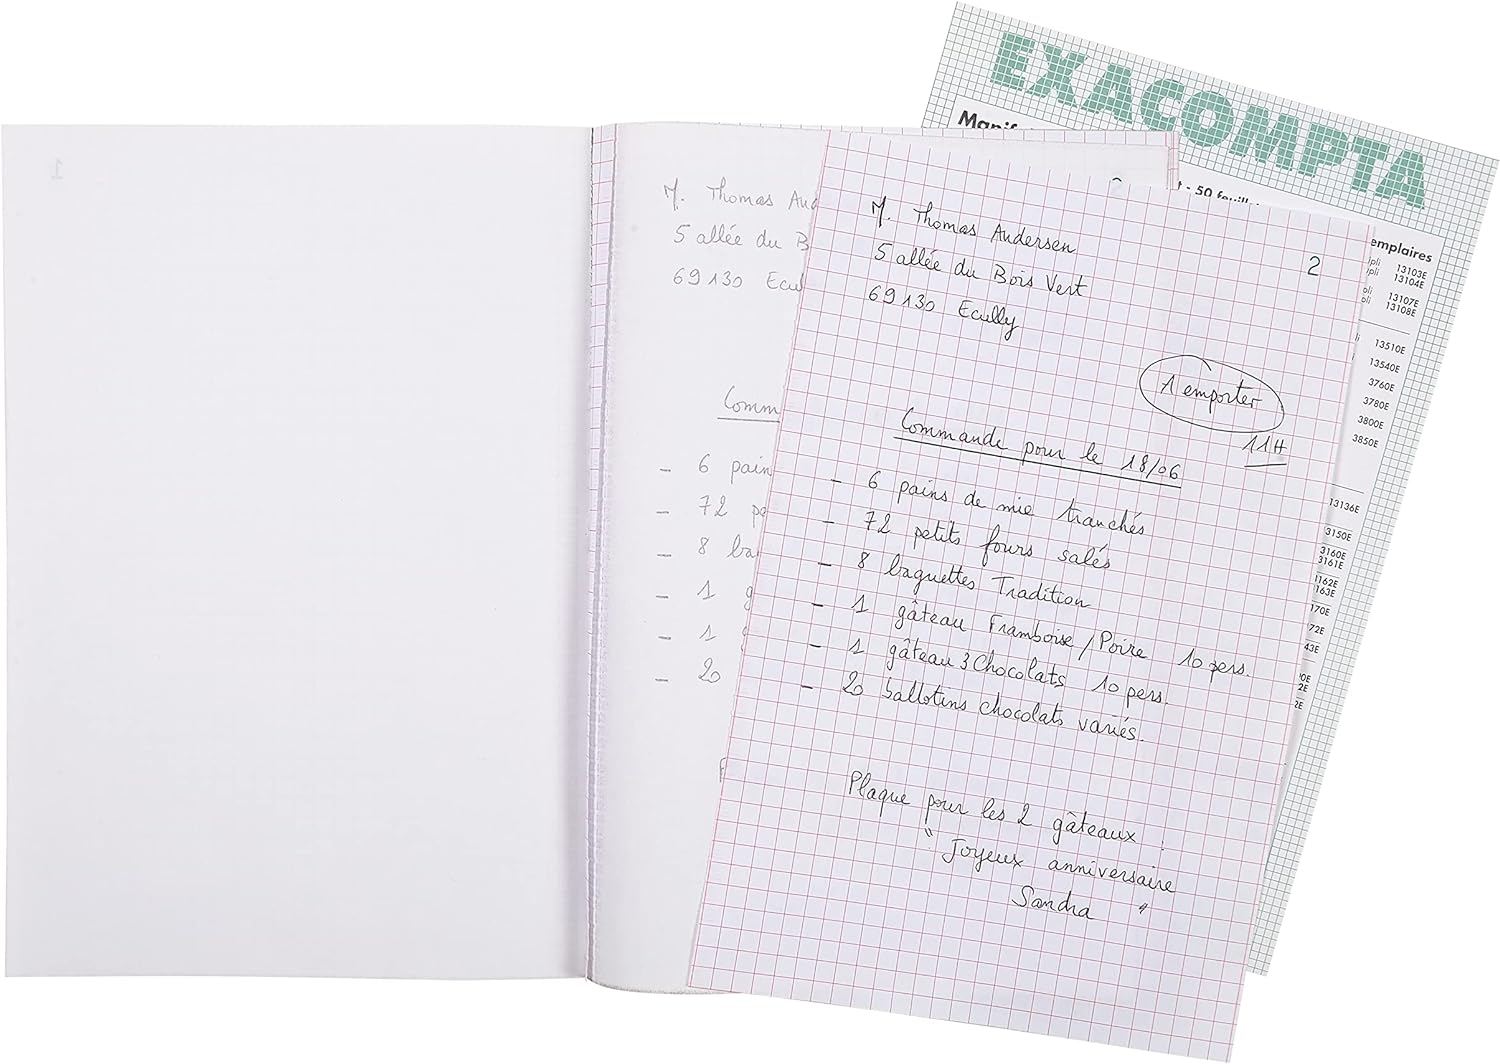 1
M. Thomas And
5 allée du B
69130 Ecu
Comm
- 6 pain
- 72 pe
- 8 ba
- 1 g
- 1 g
- 20
M. Thomas Andersen
5 allée du Bois Vert
69130 Ecully
2
1 emporter
11H
Commande pour le 18/06
- 6 pains de mie tranchés
- 72 petits fours salés
- 8 baguettes Tradition
- 1 gâteau Framboise/Poire 10 pers.
- 1 gâteau 3 Chocolats 10 pers.
- 20 ballotins chocolats variés.
Plaque pour les 2 gâteaux :
"Joyeux anniversaire
Sandra "
EXACOMPTA
Manif
- 50 feuille
emplaires
pli 13103E
pli 13104E
pli 13107E
pli 13108E
13510E
13540E
3760E
3780E
3800E
3850E
13136E
3150E
3160E
3161E
1162E
163E
170E
72E
43E
90E
2E
2E